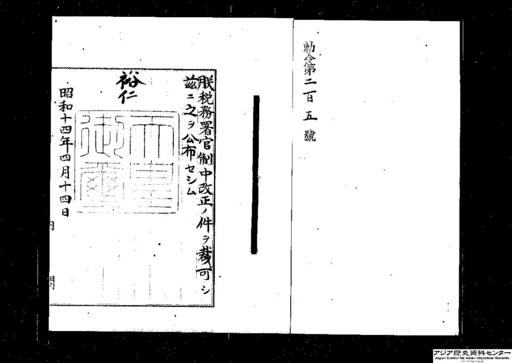 勅令第二百五號
朕税務署官制中改正ノ件ヲ裁可シ
茲ニ之ヲ公布セシム
裕仁
天皇
御璽
昭和十四年四月十四日
アジア歴史資料センター
Japan Center for Asian Historical Records